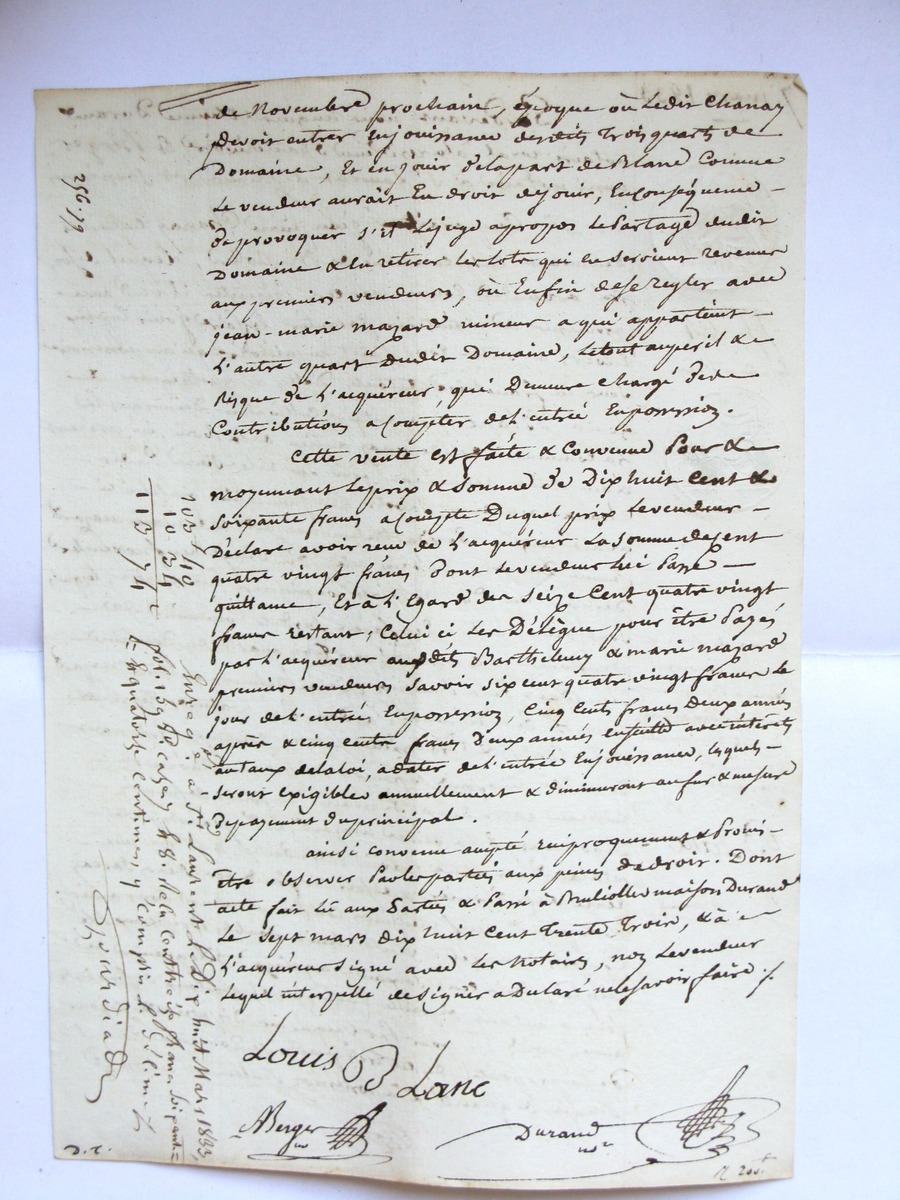 de Novembre prochain, époque où ledit Chanay
devoit entrer en jouissance desdits trois quarts de
Domaine, Et en jouir de la part de Blanc Comme
le vendeur aurait Eu droit de jouir, En Conséquence
de provoquer s'il le juge apropos le Partage dudit
Domaine & en retirer les lots qui en seroient revenus
aux premiers vendeurs, où Enfin de se regler avec
jean-marie mazard mineur a qui appartient
L'autre quart dudit Domaine, le tout au peril &
Risque de L'acquéreur, qui Demeure chargé de
Contributions a Compter de L'entrée En possession.
Cette vente est faite & Convenue Pour &
moyennant le prix & Somme de Dix huit Cent &
soixante francs a Compte Duquel prix le vendeur
Déclare avoir reçu de L'acquéreur La somme de cent
quatre vingt francs Dont le vendeur lui Passe
quittance, Et à L'Egard des seize Cent quatre vingt
francs restant, Celui ci les Délègue pour être Payés
par l'acquéreur auxdits Barthelemy & marie mazard
premiers vendeurs savoir six cent quatre vingt francs le
jour de L'entrée En possession, Cinq Cents francs deux années
après & cinq cents francs deux années ensuitte avec intérêts
au taux de la loi, a dater de L'entrée En jouissance, lesquels
seront exigibles annuellement & diminueront au fur & mesure
De payement du principal.
ainsi convenu accepté Réciproquement & Promis
être observer Par les parties aux peines de droit. Dont
acte fait lû aux Parties & Passé à maison Durand
Le sept mars dix huit Cent Trente Trois, & à
L'acquéreur signé avec les Notaires, non le vendeur
Lequel interpellé de signer a Déclaré ne le savoir faire ./.
Louis Blanc
ABerger
Durand
n.re
D. R.
R. 200f
256/79
103 40
10 34
113 74 c
Enreg.é à St Laurent le Dix huit Mars 1833,
fol. 159 R. case 7 & 8. Reçu cent treize francs soixante
& quatorze centimes, y compris le décime
Gourdiad